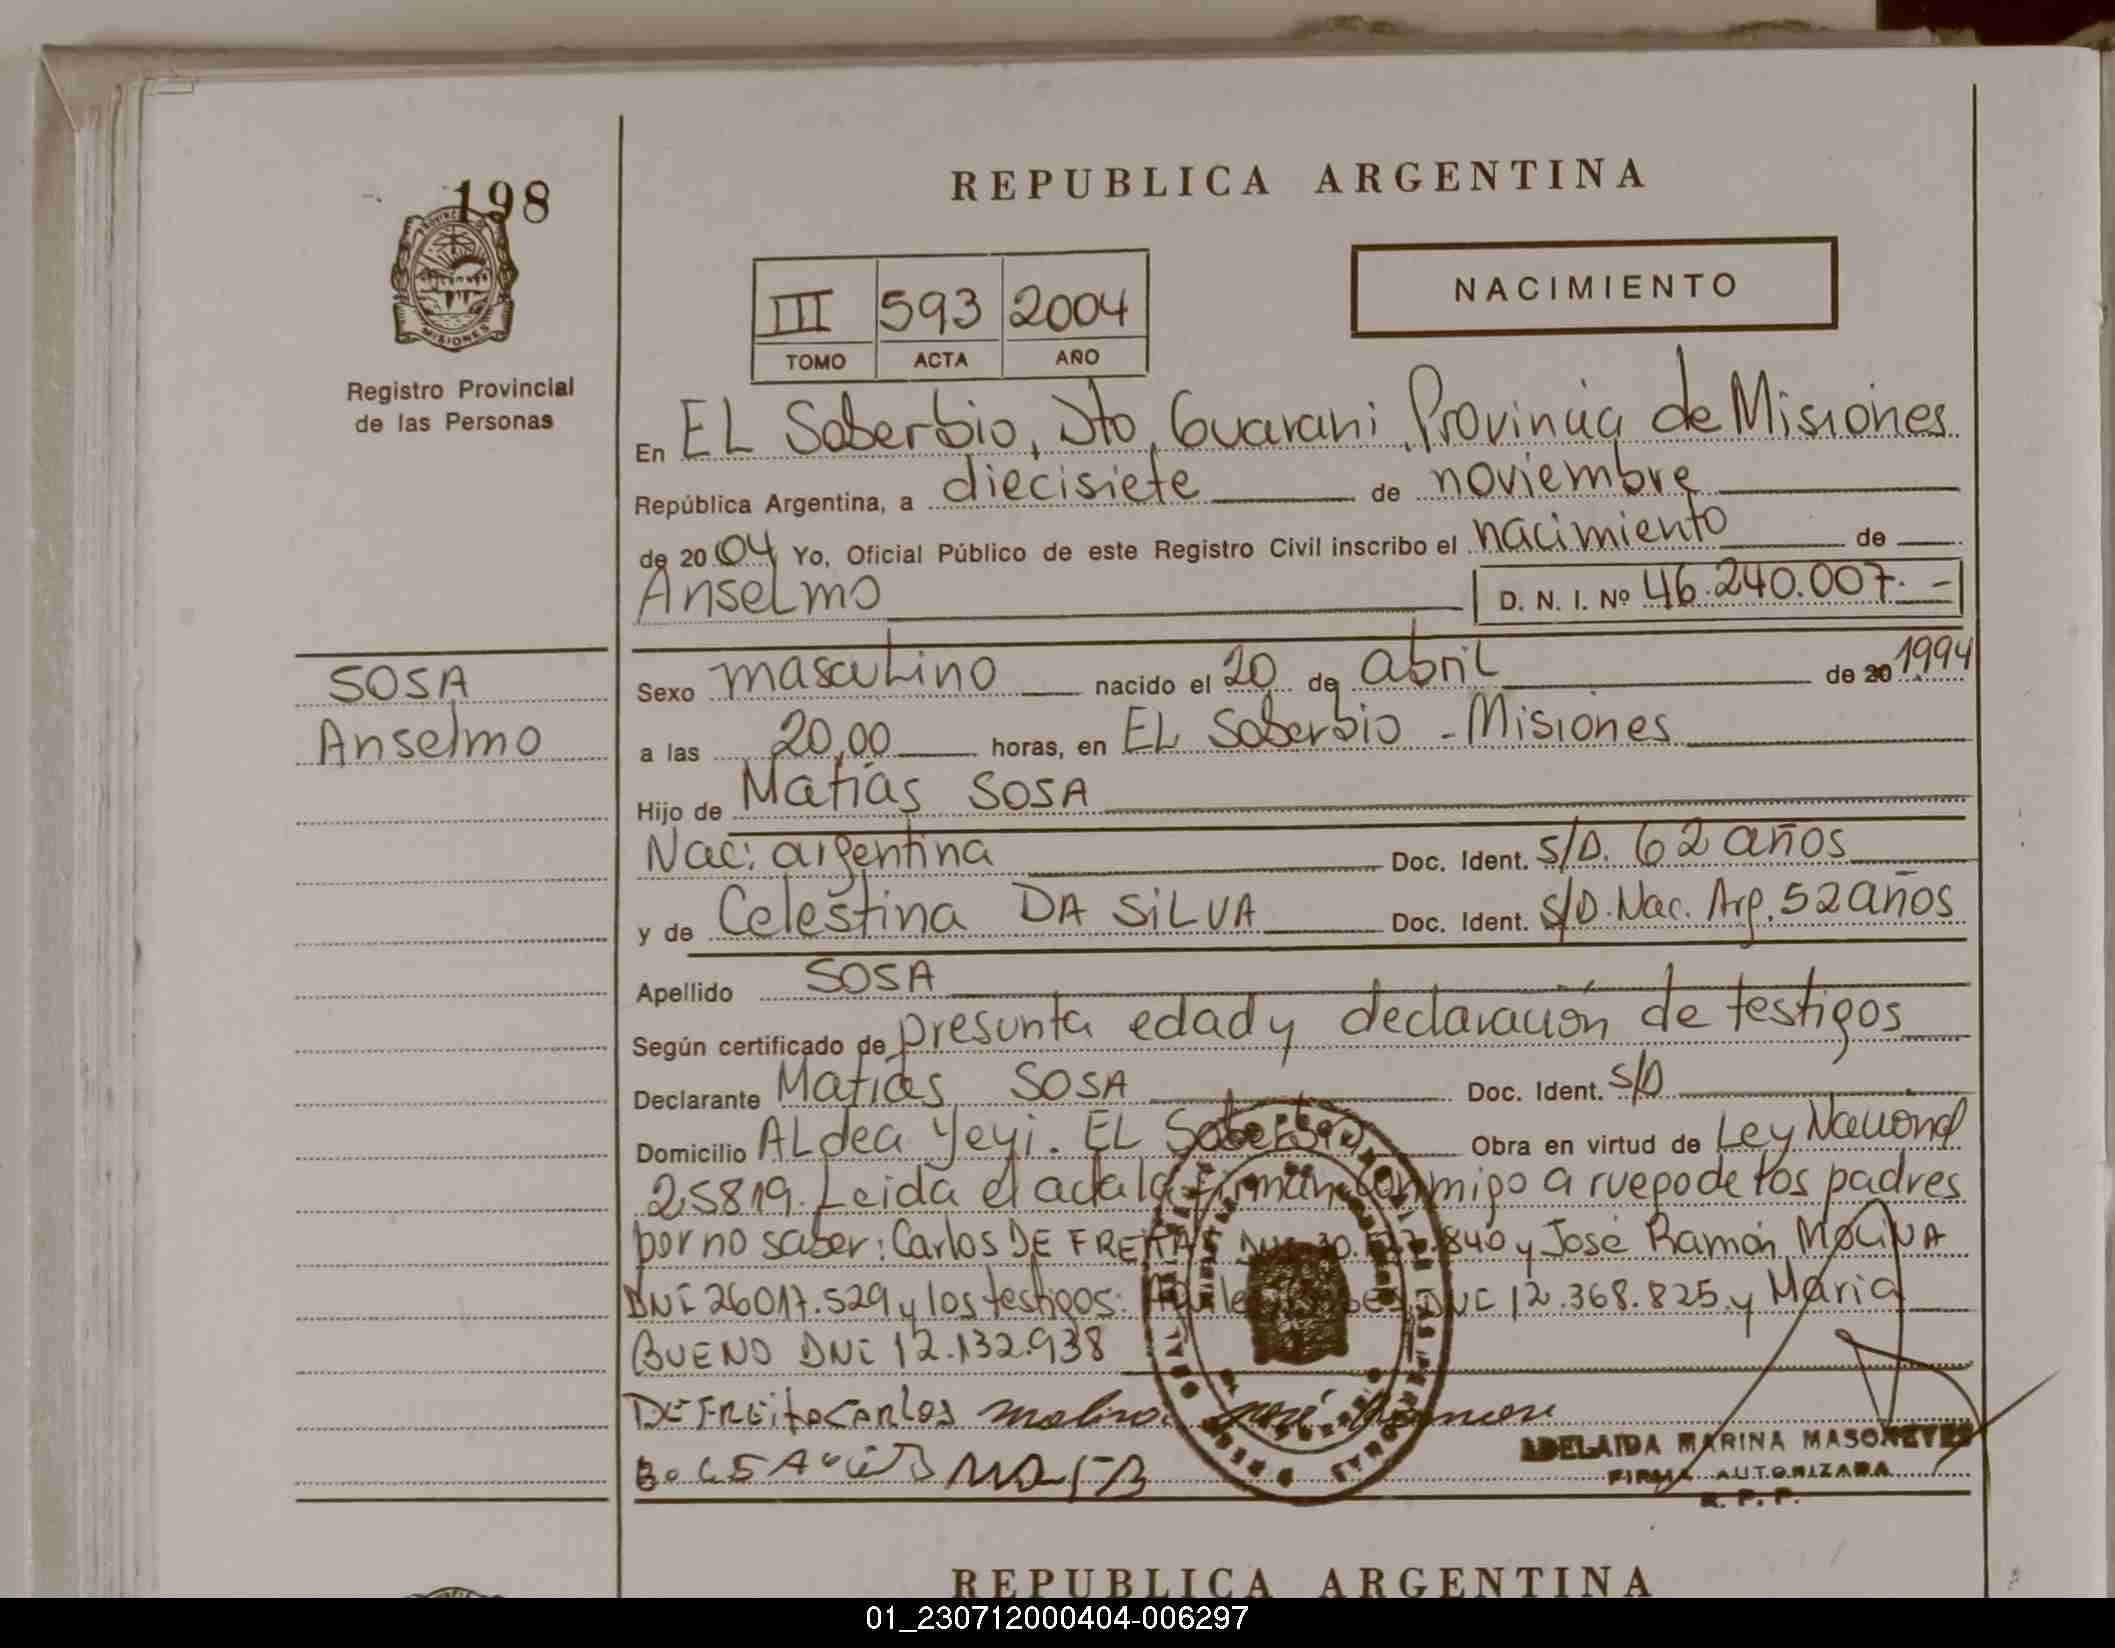 198
REPUBLICA ARGENTINA
NACIMIENTO
III 593 2004
TOMO ACTA AÑO
MISIONES
Registro Provincial
de las Personas
En EL Soberbio, Dto. Guarani, Provincia de Misiones
República Argentina, a diecisiete de noviembre
de 20 04 Yo, Oficial Público de este Registro Civil inscribo el nacimiento de
Anselmo D. N. I. Nº 46.240.007.-
SOSA
Anselmo
Sexo masculino nacido el 20 de abril de 20 1994
a las 20,00 horas, en EL Soberbio - Misiones
Hijo de Matías SOSA
Nac: argentina Doc. Ident. S/D. 62 años
y de Celestina DA SiLVA Doc. Ident. S/D. Nac. Arg. 52 años
Apellido SOSA
Según certificado de presunta edad y declaración de testigos
Declarante Matías SOSA Doc. Ident. S/D
Domicilio ALdea Yeyi. EL Soberbio Obra en virtud de Ley Nacional
25819. Leida el acta la firman conmigo a ruego de los padres
por no saber: Carlos DE FREITAS 840 y José Ramón MOLINA
DNI 26017.529 y los testigos: DNI 12.368.825 y Maria
BUENO DNI 12.132.938
DE FREITA CARLOS Molina José Ramon
ADELAIDA MARINA MASONEVES
FIRMA AUTORIZADA
R. P. P.
REPUBLICA ARGENTINA
01_230712000404-006297